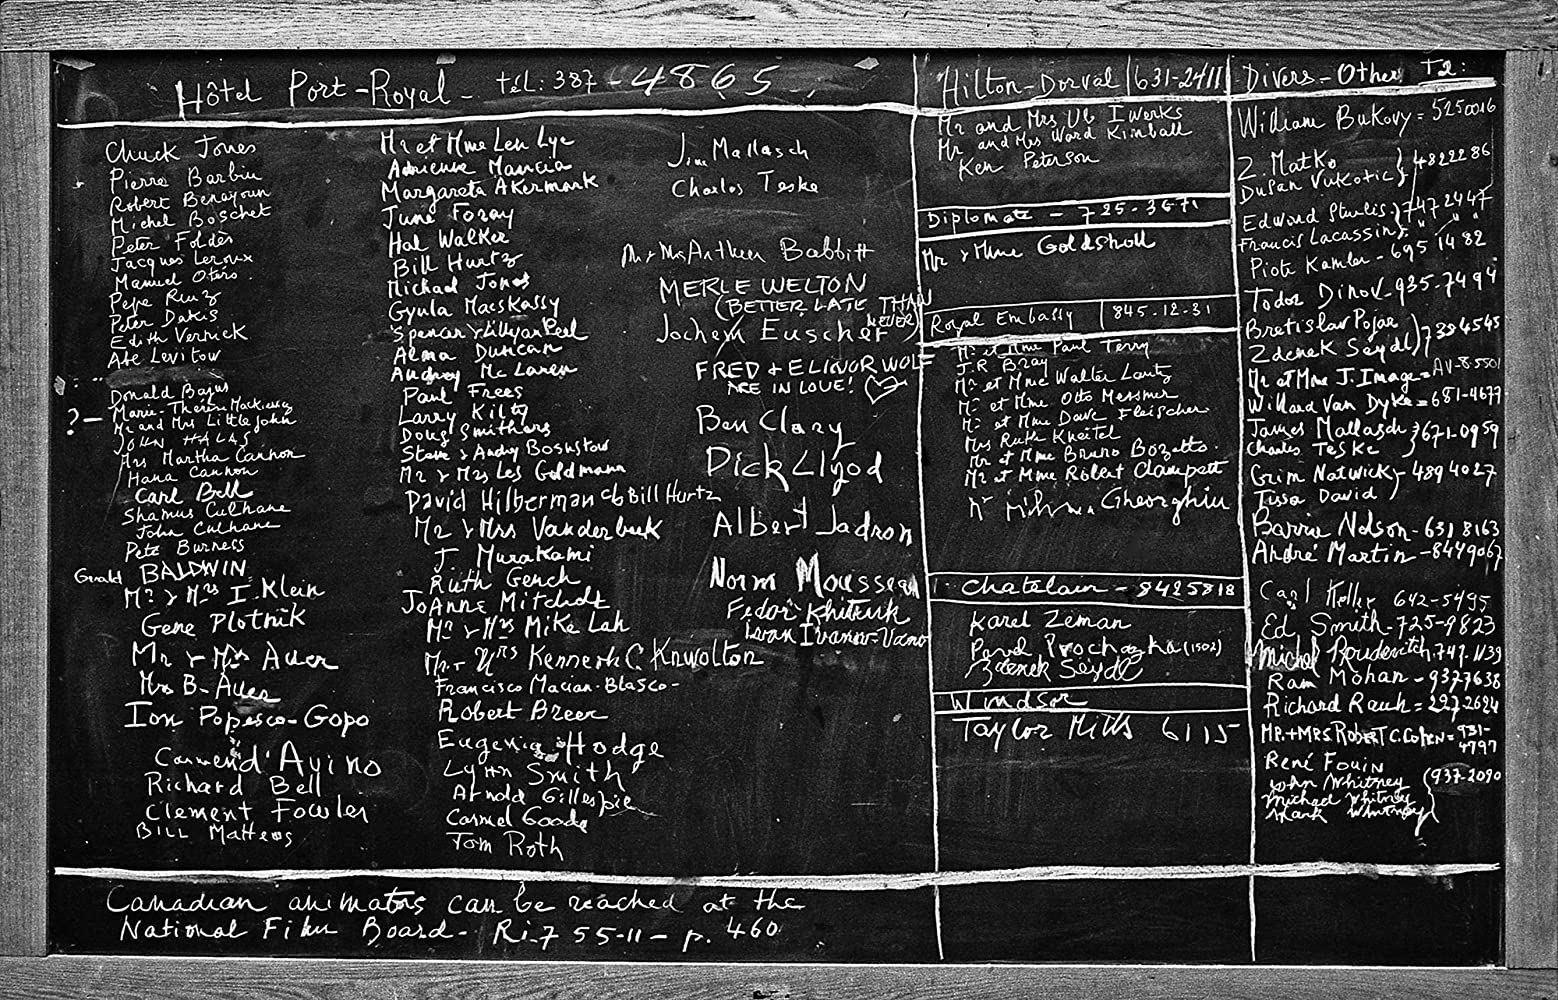 Hôtel Port-Royal - tél: 387-4865
Chuck Jones
Pierre Barbin
Robert Benayoun
Michel Boschet
Peter Foldès
Jacques Leroux
Manuel Otero.
Pepe Ruiz
Peter Dakis
Edith Vernick
Abe Levitow
Donald Bajus
? - Marie-Thérèse
Mr and Mrs Littlejohn
JOHN HALAS
Mrs Martha Cannon
Hana Cannon
Carl Bell
Shamus Culhane
John Culhane
Pete Burness
Gerald BALDWIN
Mr & Mrs I. Klein
Gene Plotnik
Mr & Mrs Auer
Mrs B. Auer
Ion Popesco-Gopo
Carmen d'Avino
Richard Bell
Clement Fowler
BILL Mathews
Mr et Mme Len Lye
Adrienne Mancia
Margareta Akermark
June Foray
Hal Walker
Bill Hurtz
Michael Jones
Gyula Macskassy
Spencer & Lillyan Peel
Alma Duncan
Audrey McLaren
Paul Frees
Larry Kilty
Doug Smithers
Steve & Andy Bosustow
Mr & Mrs Les Goldmann
David Hilberman c/o Bill Hurtz
Mr & Mrs Vanderbeek
J. Murakami
Ruth Gench
JoAnne
Mr & Mrs Mike Lah
Mr & Mrs Kenneth C. Knwolton
Francisco Macian-Blasco-
Robert Breer
Eugenia Hodge
Lynn Smith
Arnold Gillespie
Carmel Goode
Tom Roth
Jim Mallasch
Charles Teske
Mr & Mrs Arthur Babbitt
MERLE WELTON
(BETTER LATE THAN
NEVER)
Jochem Euscher
FRED + ELINOR WOLF
ARE IN LOVE!
Ben Clary
Dick Llyod
Albert Jadron
Norm Mousseau
Fedor Khitruk
Ivan Ivanov-Vano
Hilton-Dorval 631-2411
Mr and Mrs Ub Iwerks
Mr and Mrs Ward Kimball
Ken Peterson
Diplomate - 725-3671
Mr & Mme Goldsholl
Royal Embassy 845-12-31
Mr et Mme Paul Terry
J.R. Bray
Mr et Mme Walter Lantz
Mr et Mme Otto Messmer
Mr et Mme Dave Fleischer
Mrs Ruth Kneitel
Mr et Mme Bruno Bozetto.
Mr et Mme Robert Clampett
Mr Gheorghiu
Chatelain - 8425818
Karel Zeman
Pavel Prochazka (1502)
Zdenek Seydl
Windsor
Taylor Mills 6115
Divers - Other Tel:
William Bukovy = 5250016
Z. Matko
Dusan Vukotic } 4822286
Edward Sturlis } 7472447
Francis Lacassin } " " "
Piotr Kamler - 695 1482
Todor Dinov - 935-7494
Bretislav Pojar
Zdenek Seydl } 7384545
Mr et Mme J. Image = AV-8-5501
Willard Van Dyke = 681-4677
James Mallasch
Charles Teske } 671-0959
Grim Natwick - 489 4027
Tissa David
Barrie Nelson - 631 8163
André Martin - 8449067
Carl Keller 642-5495
Ed Smith - 725-9823
Michel Boudevitch. 747.1139
Ram Mohan - 9377638
Richard Rauh = 297-2624
MR. + MRS ROBERT C. COHEN = 931-
4797
René Fouin
John Whitney
Michael Whitney } (937-2090
Mark Whitney
Canadian animators can be reached at the
National Film Board - Ri. 7 55-11 - p. 460